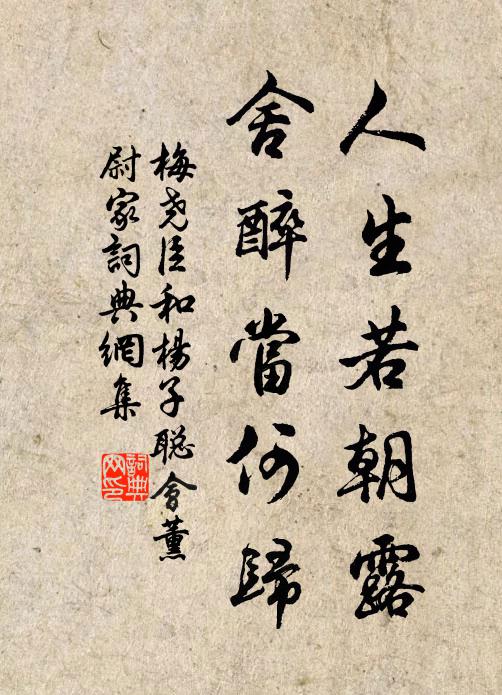 人生若朝露
舍醉當何歸
梅尧臣和楊子聡會董
尉家詞典網集
詞典网印